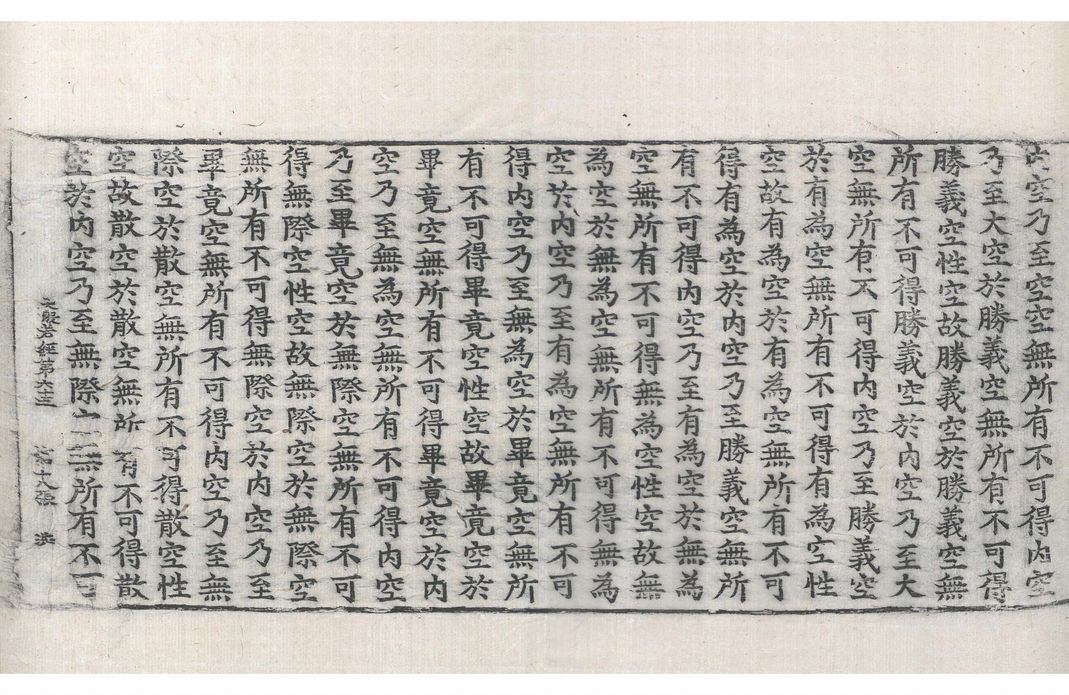 内空乃至空空無所有不可得内空
乃至大空於勝義空無所有不可得
勝義空性空故勝義空於勝義空無
所有不可得勝義空於内空乃至大
空無所有不可得内空乃至勝義空
於有為空無所有不可得有為空性
空故有為空於有為空無所有不可
得有為空於内空乃至勝義空無所
有不可得内空乃至有為空於無為
空無所有不可得無為空性空故無
為空於無為空無所有不可得無為
空於内空乃至有為空無所有不可
得内空乃至無為空於畢竟空無所
有不可得畢竟空性空故畢竟空於
畢竟空無所有不可得畢竟空於内
空乃至無為空無所有不可得内空
乃至畢竟空於無際空無所有不可
得無際空性空故無際空於無際空
無所有不可得無際空於内空乃至
畢竟空無所有不可得内空乃至無
際空於散空無所有不可得散空性
空故散空於散空無所有不可得散
空於内空乃至無際空無所有不可
般若經第六十三 張